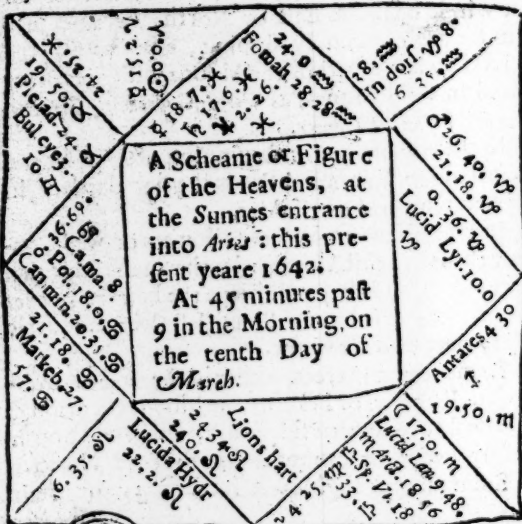 A Scheame or Figure
of the Heavens, at
the Sunnes entrance
into Aries : this pre-
sent yeare 1642:
At 45 minutes past
9 in the Morning, on
the tenth Day of
March.
19. 50. ♉
Pleiad. 24. ♉
Bul eyes.
10 ♊
♈ 0.0 ☉
☿ 18. 7. ♓
♄ 17. 6. ♓
♃ 2. 26. ♓
24. 0 ♒
Fomah 28. 28 ♒
28, ♒
In dorf. ♑ 8.
5 25. ♒
♂ 26. 40. ♑
21. 18. ♑
0. 36. ♑
Lucid Lyr. 10.0
♑
Antares 4 30
♐
19. 50. ♏
☾ 17. 0. ♏
Lucid Lan 9. 48.
♏ Arct. 18 56
♎ Sp. Vi. 18
33. ♎
24. 25. ♍
Lions hart
24 34 ♌
240. ♌
Lucida Hydr
22, 2. ♌
16. 35. ♌
21. 18. ♋
Markeb. 27.
57. ♋
26. 69.
♋ Cama 8.
6 Pol. 18. 0. ♋
Can. min. 20. 35. ♋